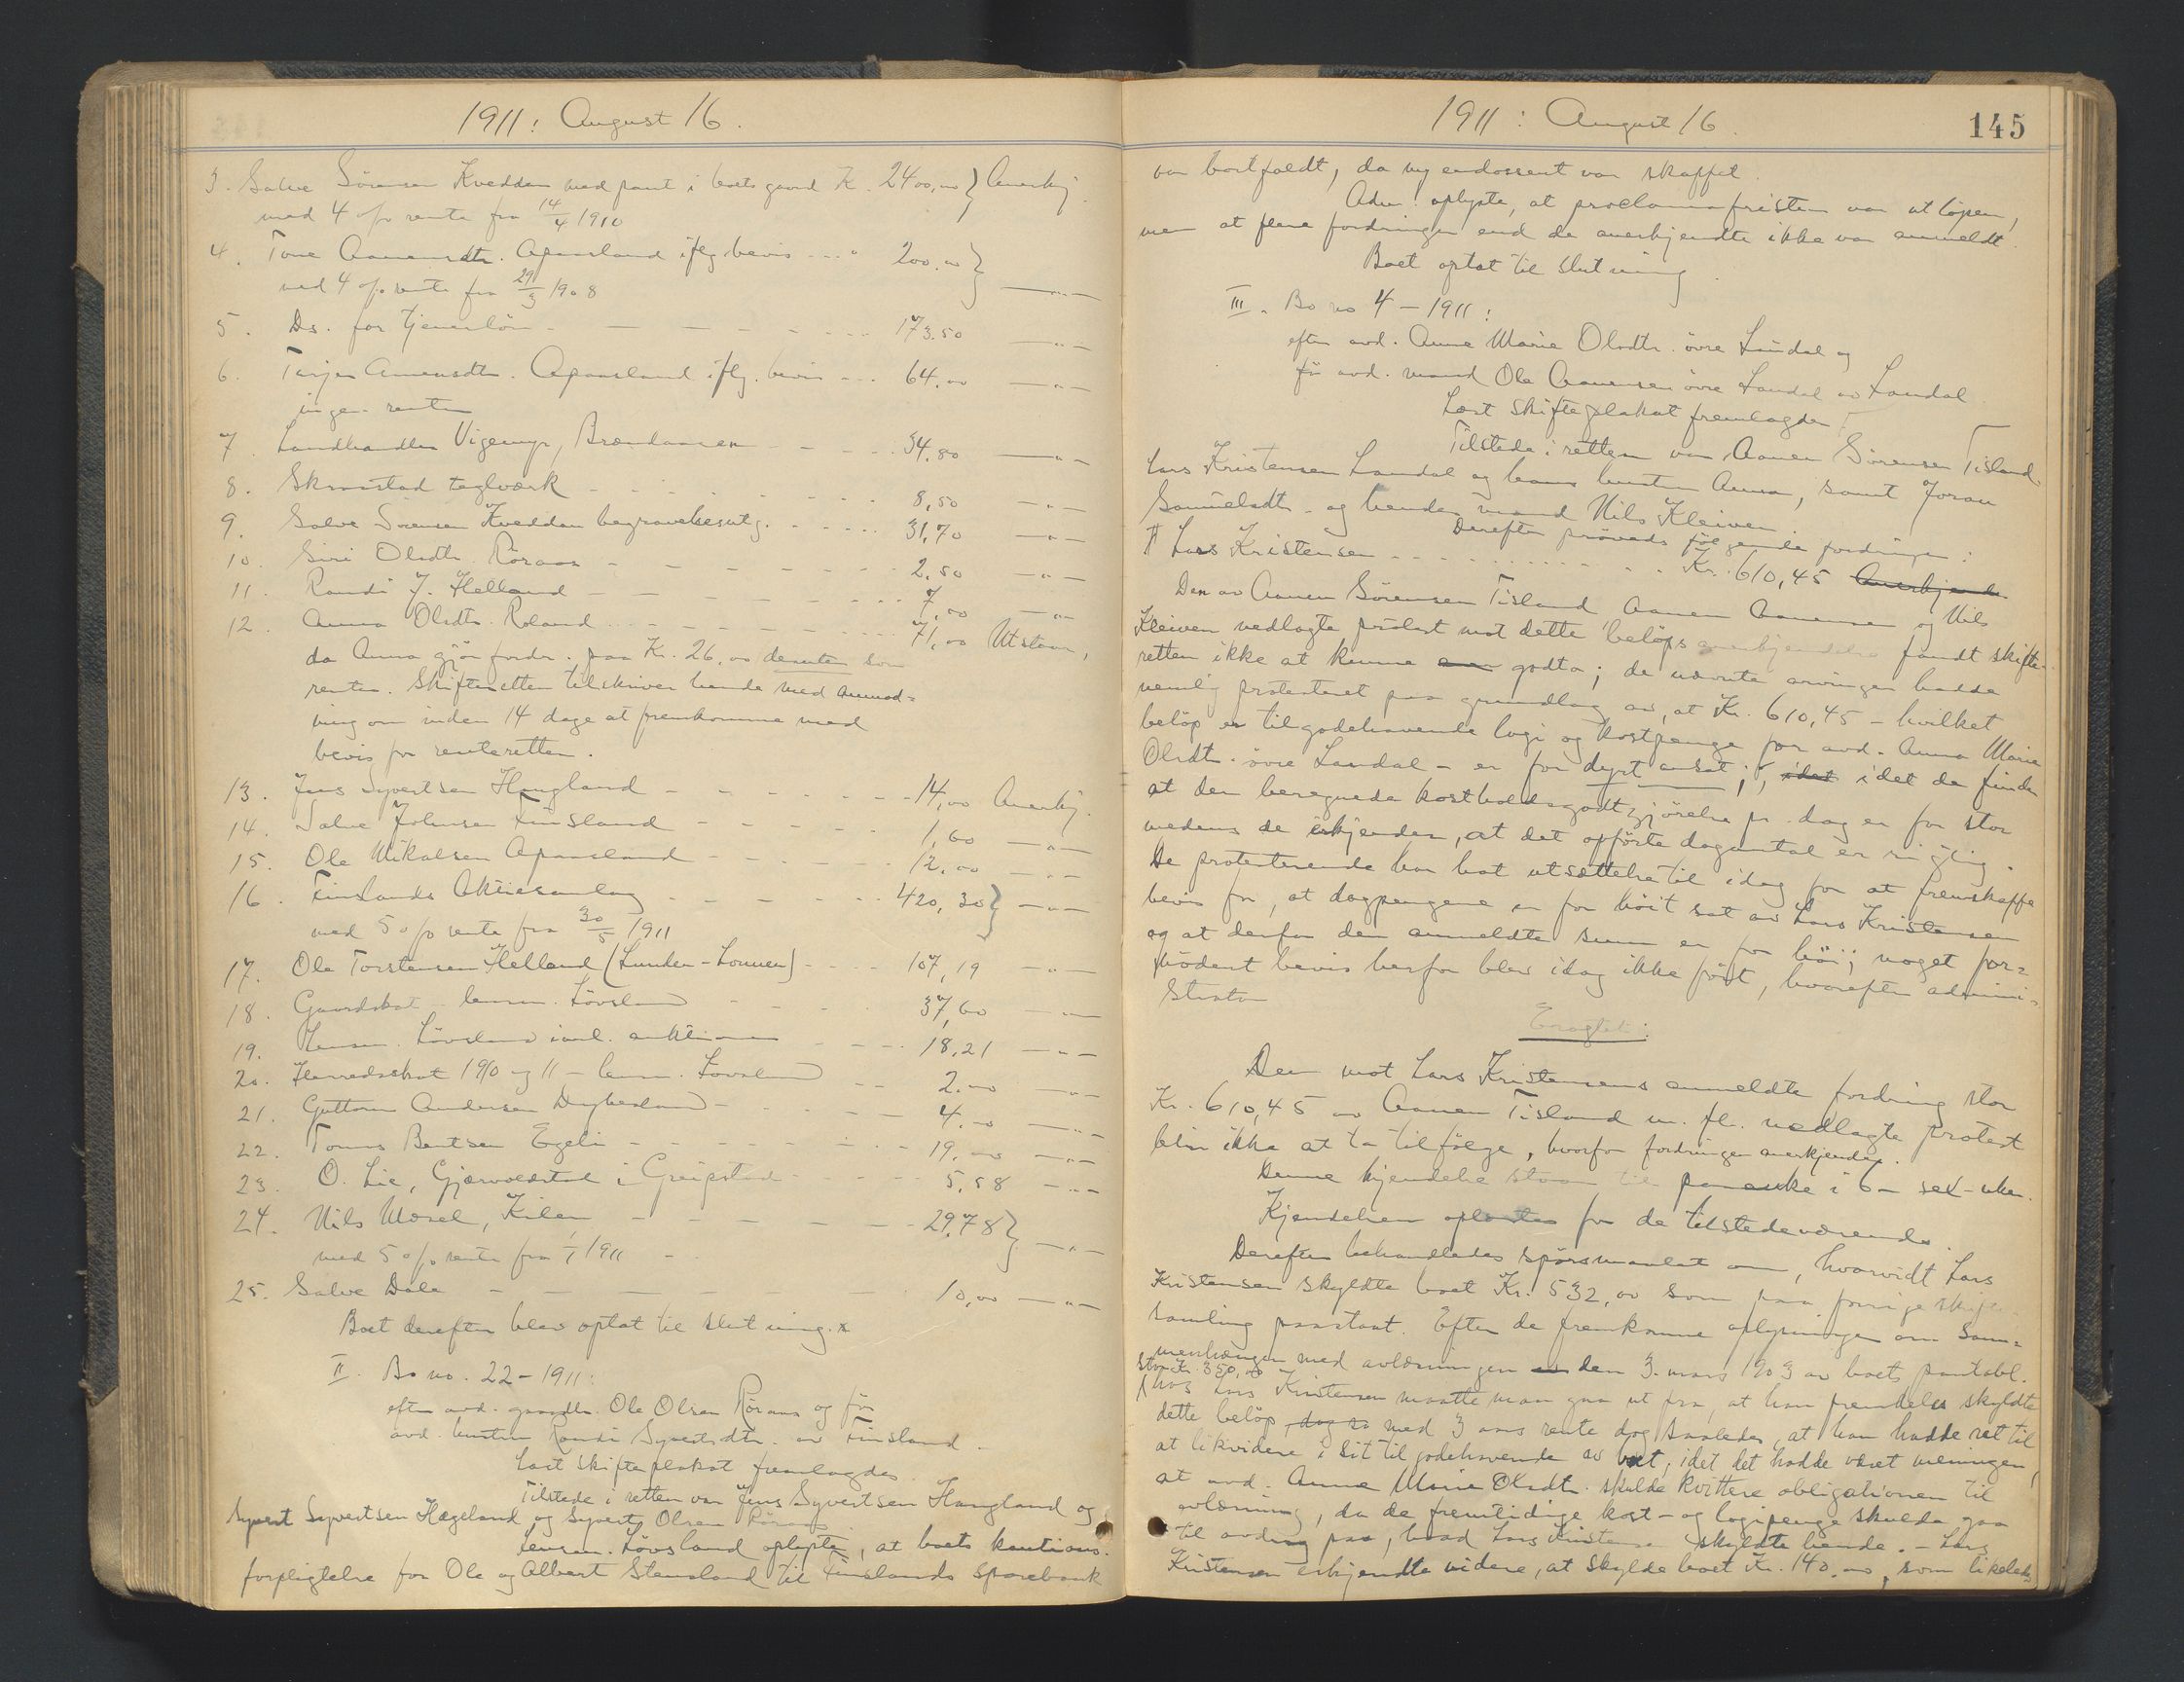 1911: August 16.
3. Salve Sörensen Kvedden med pant i boets gaard K. 2400,00 } Anerkj.
med 4 o/o rente fra 14/4 1910
4. Tone Aanensdtr. Apaasland iflg. bevis ... " 200.00 }
med 4 o/o rente fra 29/3 1908 — " —
5. Ds. for tjenerlön - - - - 173.50 — " —
6. Tarjer Aanensdtr. Apaasland iflg. bevis --- 64,00 — " —
ingen rente
7. Landhandler Vigemyr, Brændaasen - - - 34.80 — " —
8. Skraastad teglværk - - - - 8,50 — " —
9. Salve Sörensen Kvedden begravelsesutg. - - - 31,70 — " —
10. Siri Olsdtr. Röraas - - - - 2,50 — " —
11. Randi J. Helland - - - - 7,00 — " —
12. Anna Olsdtr. Röland - - - - 71,00 Utstaar,
da Anna gjör fordr. paa Kr. 26,00 desuten som
renter. Skifteretten tilskriver hende med anmod=
ning om inden 14 dage at fremkomme med
bevis for renteretten.
13. Jens Syvertsen Haugland - - - - 14,00 Anerkj.
14. Salve Johnsen Finsland - - - - 1,60 — " —
15. Ole Mikalsen Apaasland - - - - 12,00 — " —
16. Finslands Aktiesamlag - - - - 420,30 } — " —
med 5 o/o rente fra 30/5 1911
17. Ole Torstensen Helland (Lunden - Lonnen) - - - 107,19 — " —
18. Gaardskat lensm. Lövsland - - - 37,60 — " —
19. Lensm. Lövsland inkl. auktionen - - - 18,21 — " —
20. Herredsskat 1910 og 11 - lensm. Lövsland - - 2.00 — " —
21. Guttorm Andersen Dybesland - - - - 4.00 — " —
22. Toms Bentsen Egeli - - - - 19.00 — " —
23. O. Lie, Gjærvoldstad i Greipstad - - - 5,58 — " —
24. Nils Mosel, Kilen - - - - 29,78 } — " —
med 5 o/o rente fra 1/1 1911 - -
25. Salve Dale - - - - 10,00 — " —
Boet derefter blev optat til slutning.
II. Bo no. 22 - 1911:
efter avd. gaardbr. Ole Olsen Röraas og för
avd. hustru Randi Syvertsdtr. av Finsland.
Læst skifteplakat fremlagdes.
Tilstede i retten var Jens Syvertsen Haugland og
Syvert Syvertsen Hægeland og Syvert Olsen Röraas
Lensm. Lövsland oplyste, at boets kautions-
forpligtelse for Ole og Albert Stensland til Finslands Sparebank
1911: August 16.
145
var bortfaldt, da ny endossent var skaffet.
Adm. oplyste, at proclamafristen var utlöpen,
men at flere fordringer end de anerkjendte ikke var anmeldt.
Boet optat til slutning.
III. Bo no 4 - 1911:
efter avd. Anne Marie Olsdtr. övre Laudal og
för avd. mand Ole Aanensen övre Laudal av Laudal.
Læst skifteplakat fremlagdes.
Tilstede i retten var Aanen Sörensen Tisland
Lars Kristensen Laudal og hans hustru Anna, samt Joran
Samuelsdtr. og hendes mand Nils Kleiven.
Derefter prövedes fölgende fordringer:
Lars Kristensen - - - - - - Kr. 610,45 Anerkjendes
Den av Aanen Sörensen Tisland Aanen Aanensen og Nils
Kleiven nedlagte protest mot dette belöps anerkjendelse fandt skifte-
retten ikke at kunne godta; de nævnte arvinger hadde
nemlig protesteret paa grundlag av, at Kr. 610,45 - hvilket
belöp er tilgodehavende logi og kostpenge for avd. Anne Marie
Olsdtr. övre Laudal - er for dyrt ansat; idet idet de finder
at den beregnede kostholdsgodtgjörelse pr. dag er for stor
medens de erkjender, at det opförte dagantal er rigtig.
De protesterende har hat utsættelse til idag for at fremskaffe
bevis for, at dagpengene er for höit sat av Lars Kristensen
og at derfor den anmeldte sum er for höi; noget for=
nödent bevis herfor blev idag ikke fört, hvorefter admini=
strator
Eragtet:
Den mot Lars Kristensens anmeldte fordring stor
Kr. 610,45 av Aanen Tisland m. fl. nedlagte protest
blir ikke at ta tilfölge, hvorfor fordringen anerkjendes.
Denne kjendelse staar til paaanke i 6 - sex - uker.
Kjendelsen oplæstes for de tilstedeværende.
Derefter behandledes spörsmaalet om, hvorvidt Lars
Kristensen skyldte boet Kr. 532,00 som paa forrige skifte-
samling paastaat. Efter de fremkomne oplysninger om Sam=
menhængen med avlæsningen den 3. mars 1903 av boets pantobl.
stor Kr. 350,00
hos Lars Kristensen maatte man gaa ut fra, at han fremdeles skyldte
dette belöp med 3 aars rente dog saaledes, at han hadde ret til
at likvidere i sit tilgodehavende av boet, idet det hadde været meningen,
at avd. Anne Marie Olsdtr. skulde kvittere obligationen til
avlæsning, da de fremtidige kost- og logipenge skulde gaa
til avdrag paa, hvad Lars Kristensen skyldte hende. - Lars
Kristensen erkjendte videre, at skylde boet Kr. 140.00, som likeledes